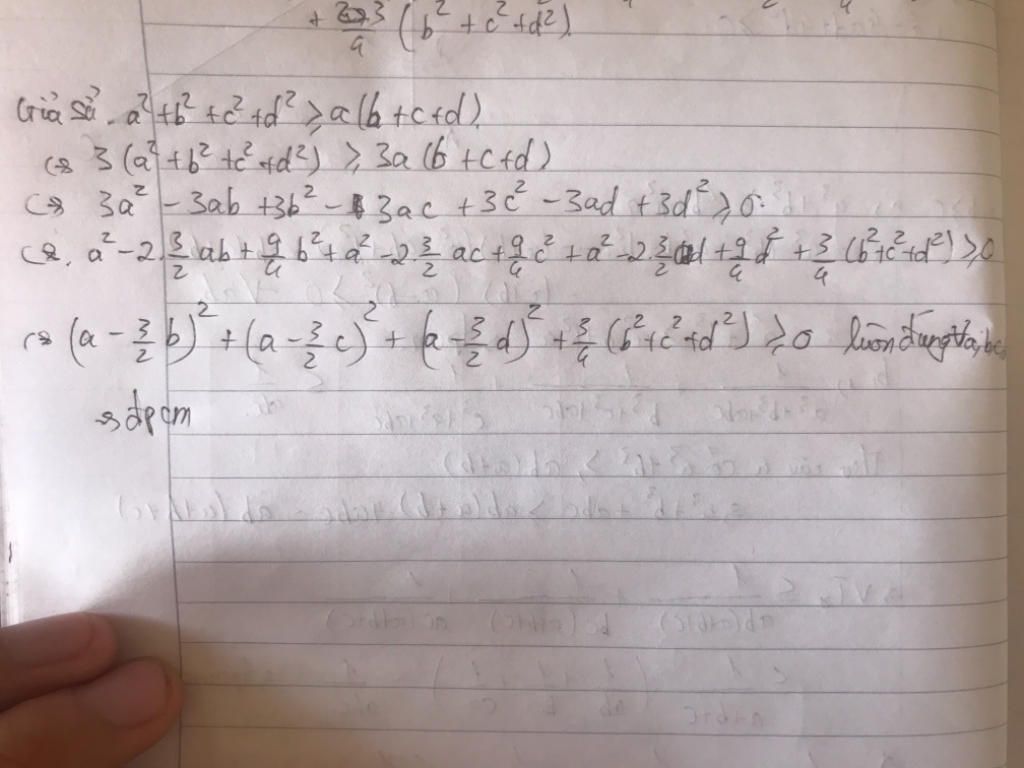 + 3/4 (b² + c² + d²)
Giả sử. a² + b² + c² + d² ⩾ a(b + c + d)
⇔ 3(a² + b² + c² + d²) ⩾ 3a(b + c + d)
⇔ 3a² - 3ab + 3b² - 3ac + 3c² - 3ad + 3d² ⩾ 0.
⇔. a² - 2.3/2 ab + 9/4 b² + a² - 2.3/2 ac + 9/4 c² + a² - 2.3/2 ad + 9/4 d² + 3/4 (b² + c² + d²) ⩾ 0
⇔ (a - 3/2 b)² + (a - 3/2 c)² + (a - 3/2 d)² + 3/4 (b² + c² + d²) ⩾ 0 luôn đúng ∀a,b,c
⇒ đpcm